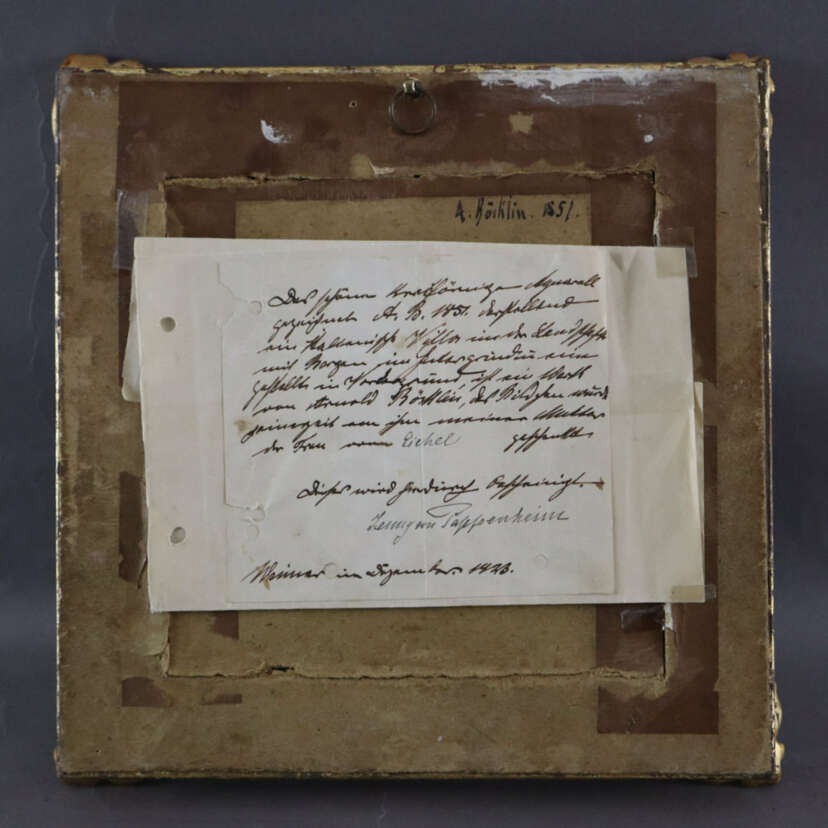 A. Böcklin. 1851.
Das schöne kreisförmige Aquarell
gezeichnet A. B. 1851. darstellend
ein Italienisch Villa in der Landschaft
mit Bergen im Hintergrund
im Vordergrund, ist ein Werk
von Arnold Böcklin, das Bildchen wurde
seinerzeit von ihm meiner Mutter
der Frau von Eichel geschenkt.
Dieses wird hierdurch bescheinigt.
Jenny von Pappenheim
Weimar im Dezember 1923.